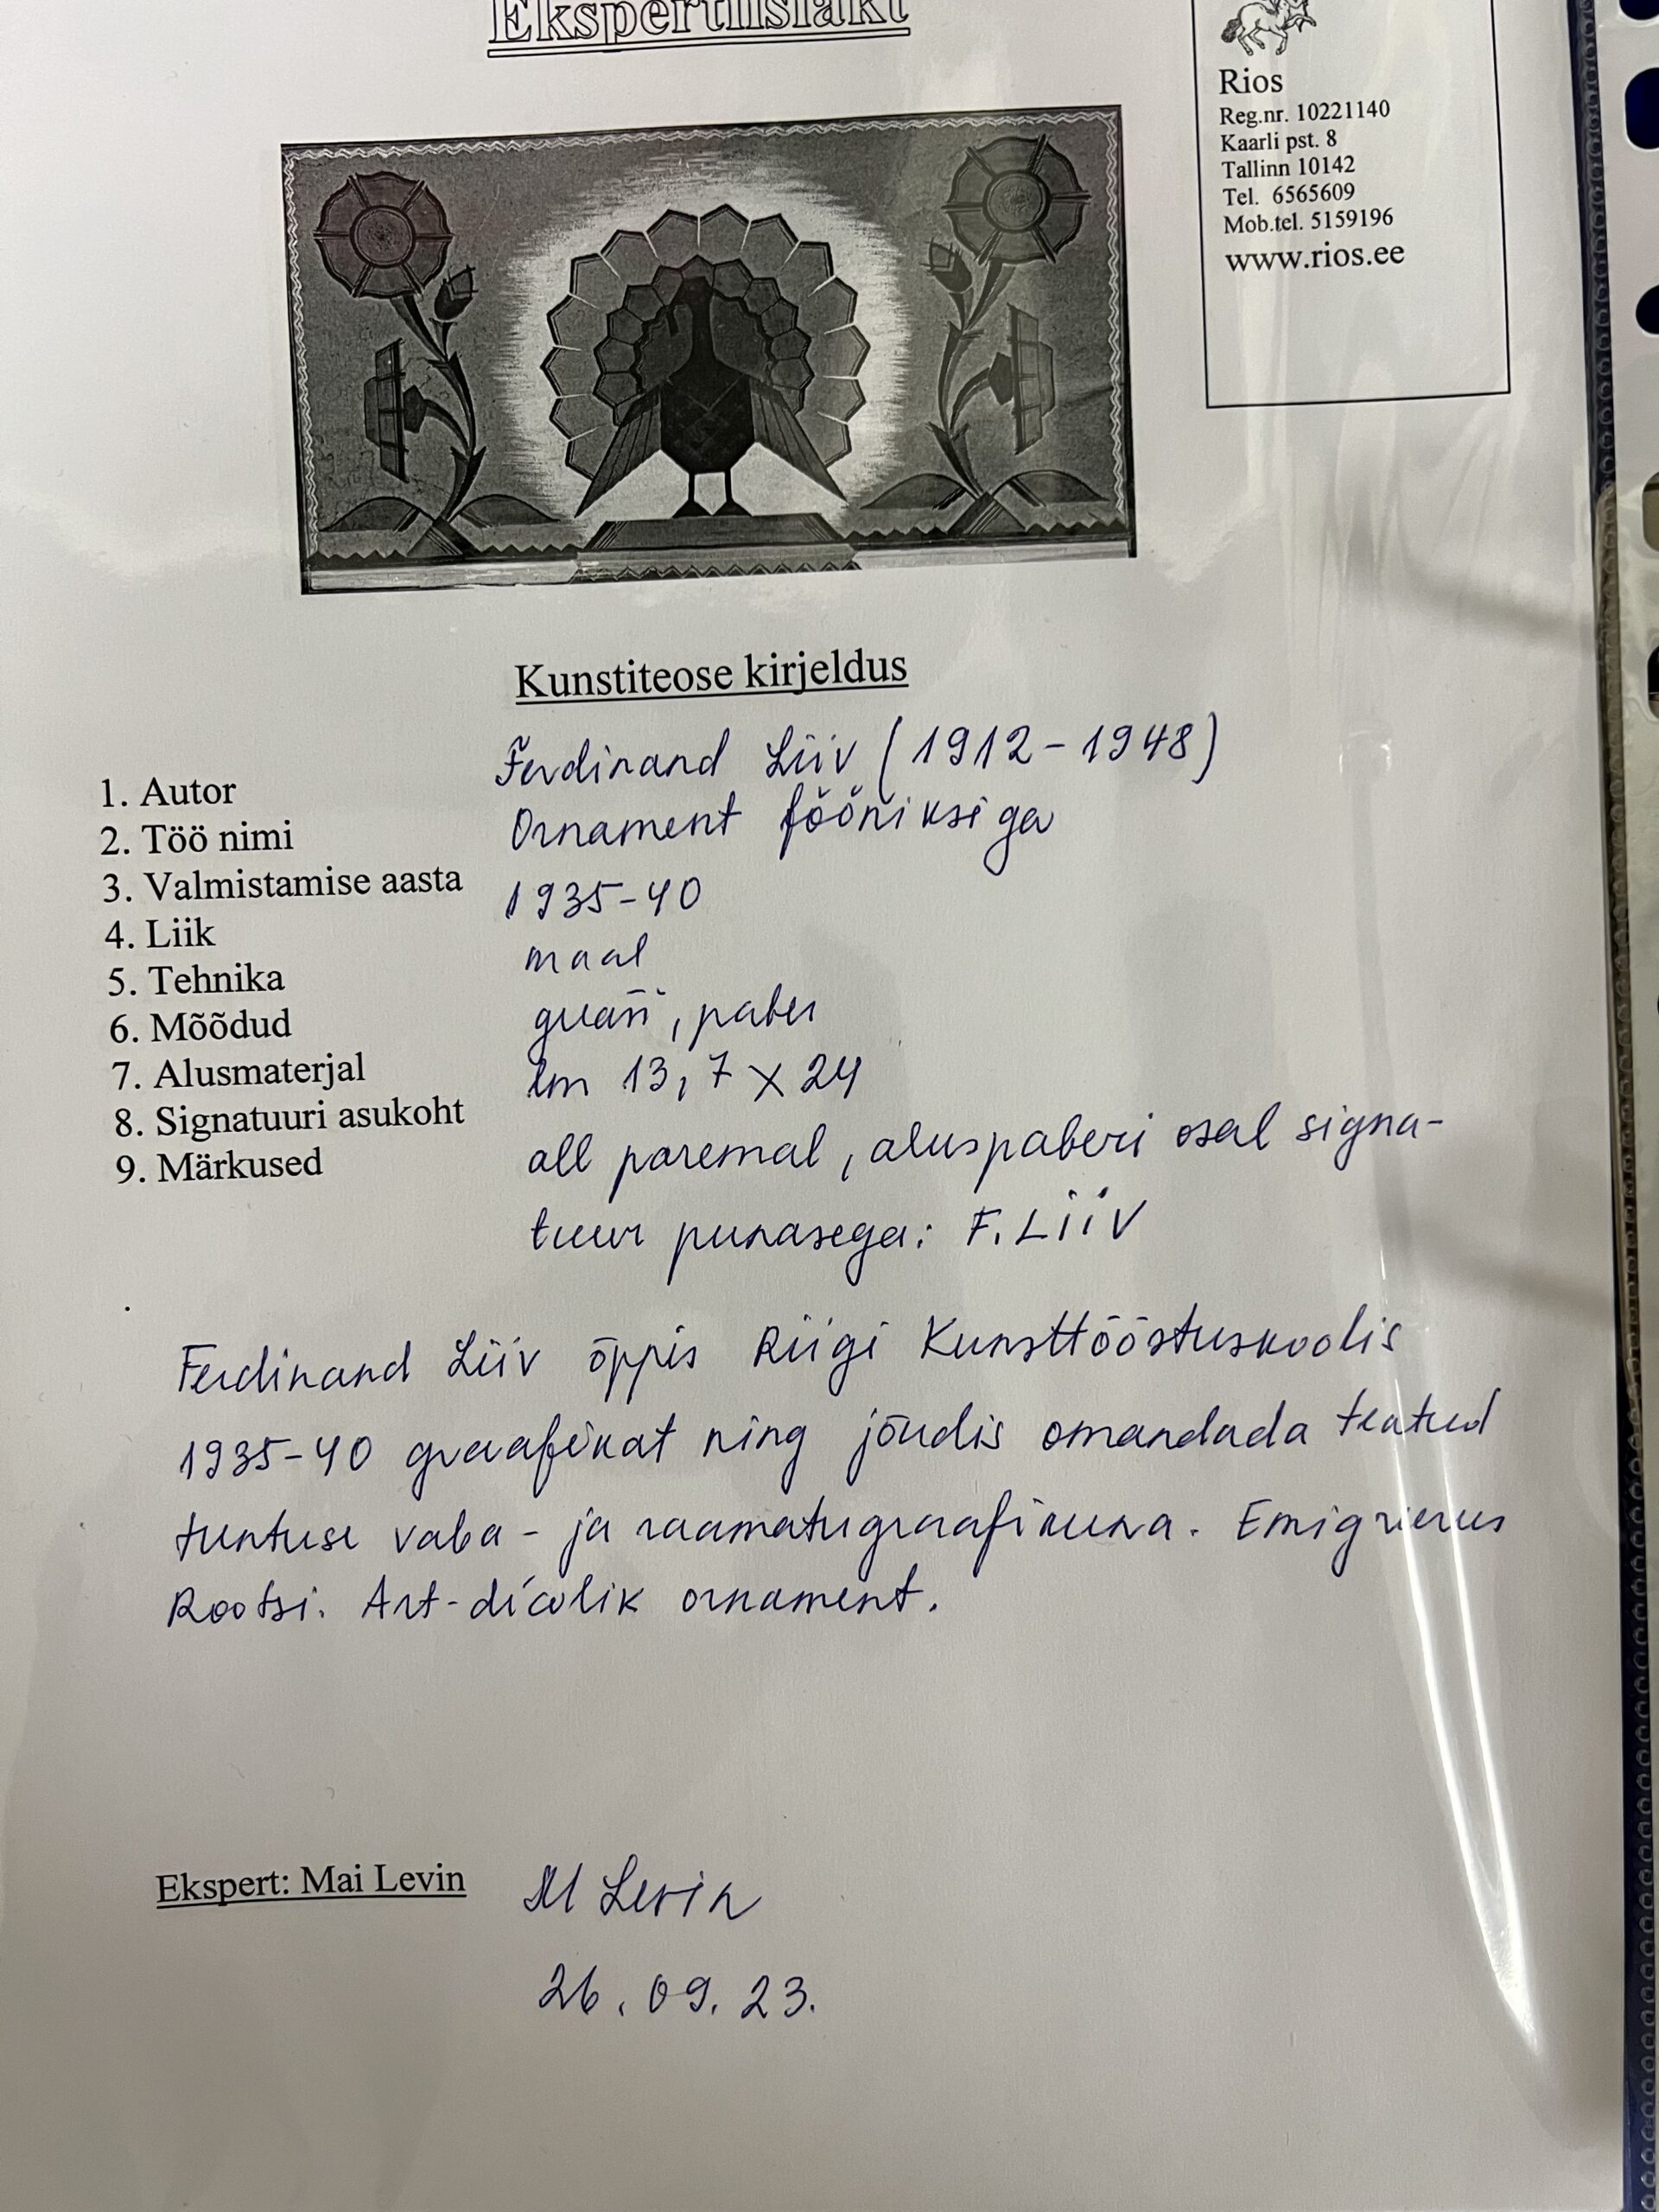 Ekspertiisiakt
Rios
Reg.nr. 10221140
Kaarli pst. 8
Tallinn 10142
Tel. 6565609
Mob.tel. 5159196
www.rios.ee
Kunstiteose kirjeldus
1. Autor
2. Töö nimi
3. Valmistamise aasta
4. Liik
5. Tehnika
6. Mõõdud
7. Alusmaterjal
8. Signatuuri asukoht
9. Märkused
Ferdinand Liiv (1912-1948)
Ornament fööniksiga
1935-40
maal
guašš, paber
lm 13,7 x 24
all paremal, aluspaberi osal signa-
tuur punasega: F. LiiV
Ferdinand Liiv õppis Riigi Kunsttööstuskoolis
1935-40 graafikat ning jõudis omandada teatud
tuntuse vaba- ja raamatugraafikuna. Emigreerus
Rootsi. Art-décolik ornament.
Ekspert: Mai Levin
M Levin
26.09.23.